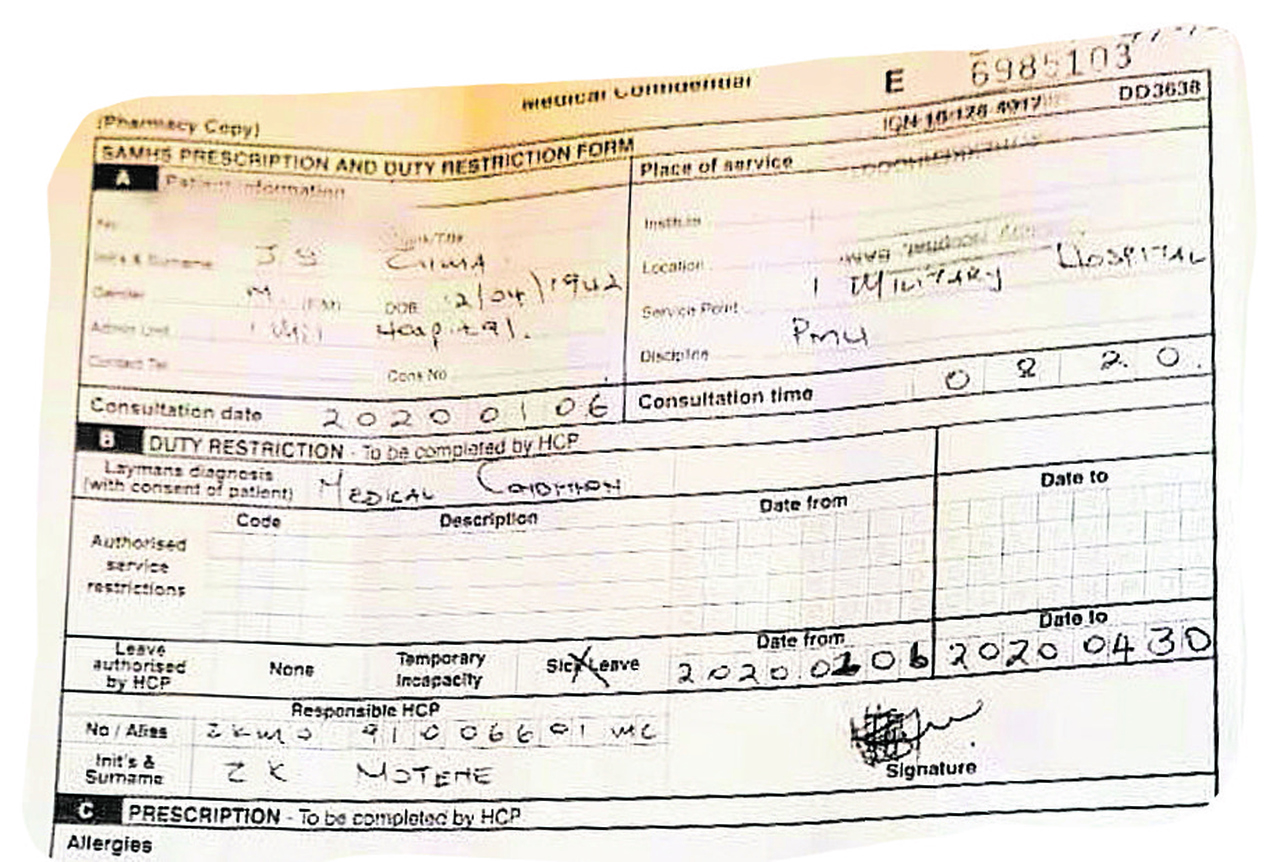 Medical Confidential
E 6985103
(Pharmacy Copy)
DD3638
SAMHS PRESCRIPTION AND DUTY RESTRICTION FORM
A Patient information
Place of service
No
Institute
Init's & Surname
Location
Gender M DOB 12/04/1942
1 MILITARY HOSPITAL
Service Point
Admin Unit 1 Mil Hospital.
PMU
Discipline
Contact Tel
Cons No
Consultation date 2020 01 06
Consultation time 08 20.
B DUTY RESTRICTION - To be completed by HCP
Laymans diagnosis
(with consent of patient) MEDICAL CONDITION
Code Description Date from Date to
Authorised
service
restrictions
Date from Date to
Leave
authorised
by HCP
None
Temporary
Incapacity
Sick Leave
2020 0 06 2020 04 30
Responsible HCP
No / Alias
Init's &
Surname
Z K MOTENE
Signature
C PRESCRIPTION - To be completed by HCP
Allergies